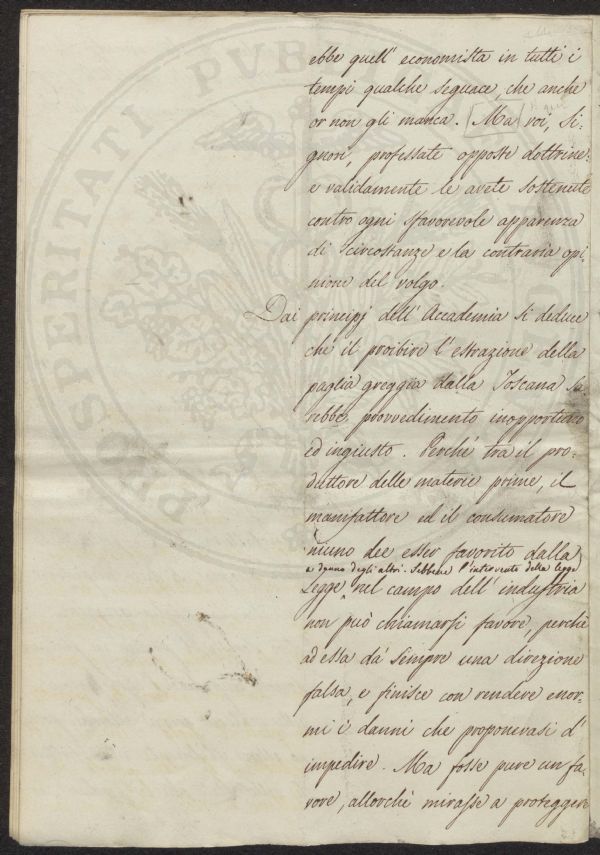 ebbe quell' economista in tutti i
tempi qualche seguace, che anche
or non gli manca. Ma voi, Si-
gnori, professate opposte dottrine
e validamente le avete sostenute
contro ogni sfavorevole apparenza
di circostanze e la contraria opi-
nione del volgo.
Dai principj dell' Accademia si deduce
che il proibire l' estrazione della
paglia greggia dalla Toscana sa-
rebbe provvedimento inopportuno
ed ingiusto. Perché tra il pro-
duttore delle materie prime, il
manifattore ed il consumatore
niuno dee esser favorito dalla
a danno degli altri. Sebbene l'intervento della legge
Legge, nel campo dell' industria
non può chiamarsi favore, perchè
ad essa dà sempre una direzione
falsa, e finisce con rendere enor-
mi i danni che proponevasi d'
impedire. Ma fosse pure un fa-
vore, allorchè mirasse a proteggere
PROSPERITATI PUBLICAE